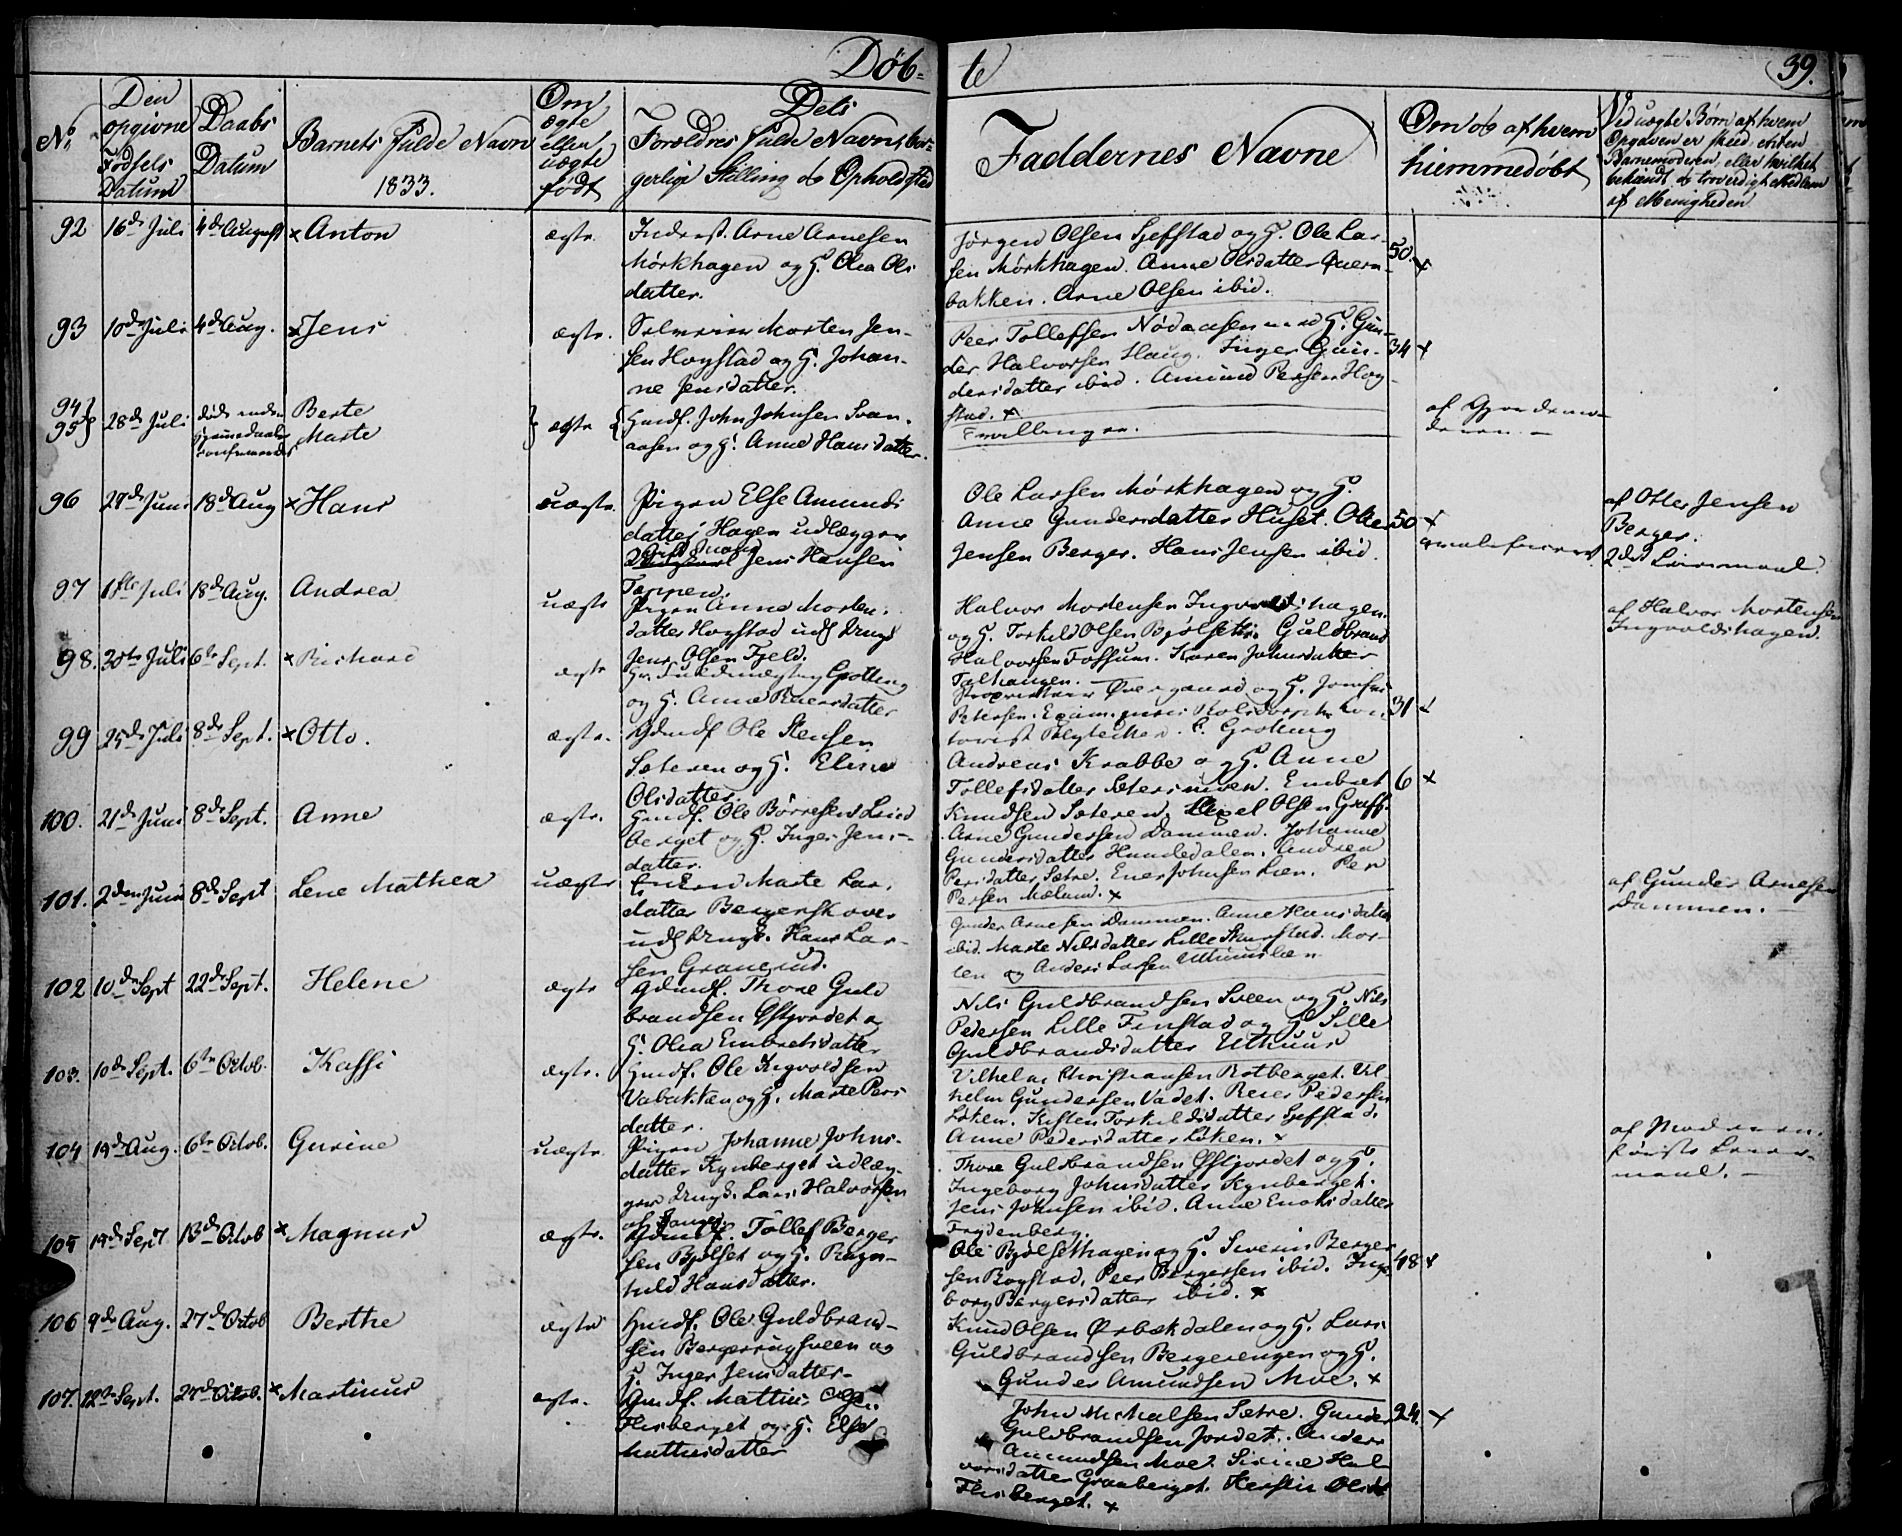 Døb-
te
39.
No
Den opgivne Fødsels Datum
Daabs Datum
Barnets fulde Navn
1833.
Om ægte eller uægte født
Dets Forældres fulde Navn, borgerlige Stilling og Opholdsted
Faddernes Navne
Om og af hvem hiemmedøbt
Ved uægte Børn af hvem
Opgaven er skeed, enten
Barnemoderen, eller hvilket
bekiendt og troværdigt Medlem
af Menigheden
92 16de Juli 4de August × Anton ægte
Inderst. Arne Arnesen
Mørkhagen og H. Olea Ols
datter.
Jørgen Olsen Sjefstad og H. Ole Lar-
sen Mørkhagen. Anne Olsdatter Quern-
bakken. Arne Olsen ibid.
50. ×
93 10de Juli 4de Aug. × Jens ægte.
Morten Jen-
sen Hogstad og H. Johan-
ne Jensdatter.
Peer Tollefsen Nødaasen med H. Gun-
der Halvorsen Haug. Inger Gun-
dersdatter ibid. Amund Persen Hog-
stad. ×
34 ×
94 }
95 } 28de Juli
døde uden
Berte
Marte
} ægte {
Huusf. John Johnsen Svan-
aasen og H. Anne Hansdatter.
Tvillinger.
af Gjordemo-
deren. —
96 29de Juni 18de Aug × Hans uægte.
Pigen Else Amunds
datter Hagen udlægger
Jens Hansen
Tappen.
Ole Larsen Mørkhagen og H.
Anne Gundersdatter Huset. Ole
Jensen Berger. Hans Jensen ibid.
50 ×
af Otter Jensen
Berger.
2det Leiermaal.
97 1ste Juli 18de Aug. Andrea uægte
Pigen Anne Morten-
datter Hogstad udl. Ungk.
Jens Olsen Fjeld.
Halvor Mortensen Ingvoldshagen
og H. Torkild Olsen Bjølset. Guldbrand
Halvorsen Fossum. Karen Johnsdatter
af Halvor Mortensen
Ingvoldshagen.
98. 20de Juli 6te Sept. × Richard ægte
Hr. Fuldmægtig Grotting
og H. Anne Reiersdatter
Proprietær Overgaard og H. Jomfru
Petersen.
Grotting
31 ×
99 25de Juli 8de Sept. × Otto. ægte.
Gdmdf Ole Stensen
Sæteren og H. Eline
Olsdatter.
Andreas Krabbe og H. Anne
Tollefsdatter Embret
Knudsen Sæteren. Olsen Graff.
6 ×
100. 21de Juni 8de Sept. Anne ægte.
Huusf. Ole Børresen
berget og H. Inger Jens-
datter.
Arne Gundersen Dammen. Johanne
Gundersdatter Hundedalen. Andrea
Persdatter Sætre. Ener Johnsen Lien. Per
Persen Mælum. ×
101. 2den Juni 8de Sept Lene Mathea uægte
Enken Marte Lar-
datter Bergerskoven
udl Ungk. Hans Lar-
sen Granerud.
Gunder Arnesen Dammen. Anne Hansdatter
ibid. Marte Nilsdatter Lille Skurstad. Mor-
ten og Anders Larsen
af Gunder Arnesen
Dammen. —
102 10de Sept 22de Sept. Helene ægte
Gdmdf. Thore Guld
brandsen Østjordet og
H. Olea Embretsdatter
Nils Guldbrandsen Sveen og H. Nils
Pedersen Lille Finstad og H. Sille
Guldbrandsdatter Uthuus
103. 10de Sept. 6te Octob. Kassi ægte.
Huusf. Ole Ingvoldsen
Vabakken og H. Marte Pers
datter.
Vilhelm Christiansen Rotberget. Vil-
helm Gundersen Vadet. Reier Pedersen
Løken. Kirsten Torkildsdatter Sjefstad.
Anne Pedersdatter Løken. ×
104 19de Aug. 6te Octob. Gurine uægte.
Pigen Johanne Johns-
datter Kynberget udlæg-
ger Ungk. Lars Halvorsen
Thore Guldbrandsen Østjordet og H.
Ingeborg Johnsdatter Kynberget.
Jens Johnsen ibid. Anne Enoksdatter
Frydenberg.
af Moderen.
første Leier-
maal. —
105 19de Sept 13de Octob × Magnus ægte.
Gdmdf. Tollef Berger
sen Bjølset og H. Ragn-
hild Hansdatter.
Ole Bjølsethagen og H. Severin Berger
sen Rogstad. Peer Bergersen ibid. Inge
borg Bergersdatter ibid. ×
48 ×
106 9de Aug. 27de Octob Berthe ægte
Huusf. Ole Guldbrand-
sen og
H. Inger Jensdatter.
Knud Olsen Ørbækdalen og H. Lars
Guldbrandsen Bergerengen og H.
Gunder Amundsen Moe. ×
107. 12te Sept. 27de Octob. × Martinus ægte.
Gmdf. Mattis Olsen
Flisberget og H. Else
Mathisdatter
John Michalsen Sætre. Gunder
Guldbrandsen Jordet. Anders
Amundsen Moe. Sirine Hal
vorsdatter Graaberget. Kersti Olsdt
Flisberget. ×
24. ×